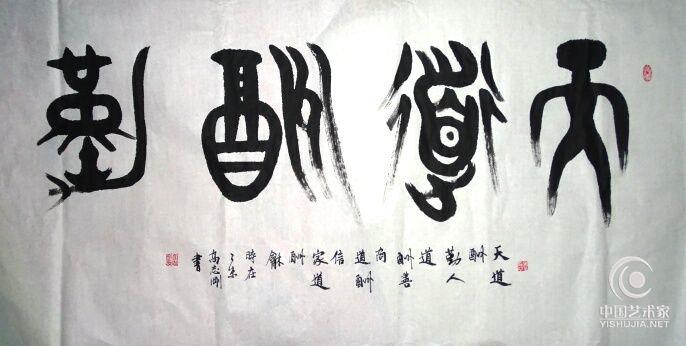 天道酬勤
天道
酬
勤人
道
酬善
商
道酬
信
家道
酬
時在
乙未
高志刚
書
中国艺术家
YISHUJIA.NET